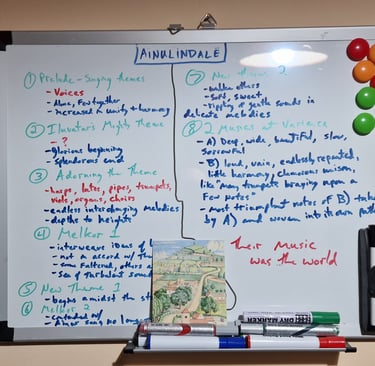 AINULINDALË
① Prelude - Singing themes
- Voices
- Alone, Few together
- Increased in unity + harmony
② Iluvatar's Mighty Theme
- ?
- Glorious beginning
- Splendorous end
③ Adorning the Theme
- harps, lutes, pipes, trumpets,
viols, organs, choirs
- endless interchanging melodies
- depths to heights
④ Melkor 1
- interweave ideas of
- not in accord w/
- some faltered, others
- Sea of Turbulent sound
⑤ New Theme 1
- begins amidst the
⑥ Melkor 2
- contended w/
- Ainur sang no longer
⑦ New Theme 2
- unlike others
- soft, sweet
- rippling of gentle sounds in
delicate melodies
⑧ 2 Musics at Variance
A) Deep, wide, beautiful, slow,
sorrowful
B) loud, vain, endlessly repeated,
little harmony, clamorous unison,
like "many trumpets braying upon a
few notes"
- most triumphant notes of B) taken
by A) and woven into its own
Their Music
was the world
DRY MARKER